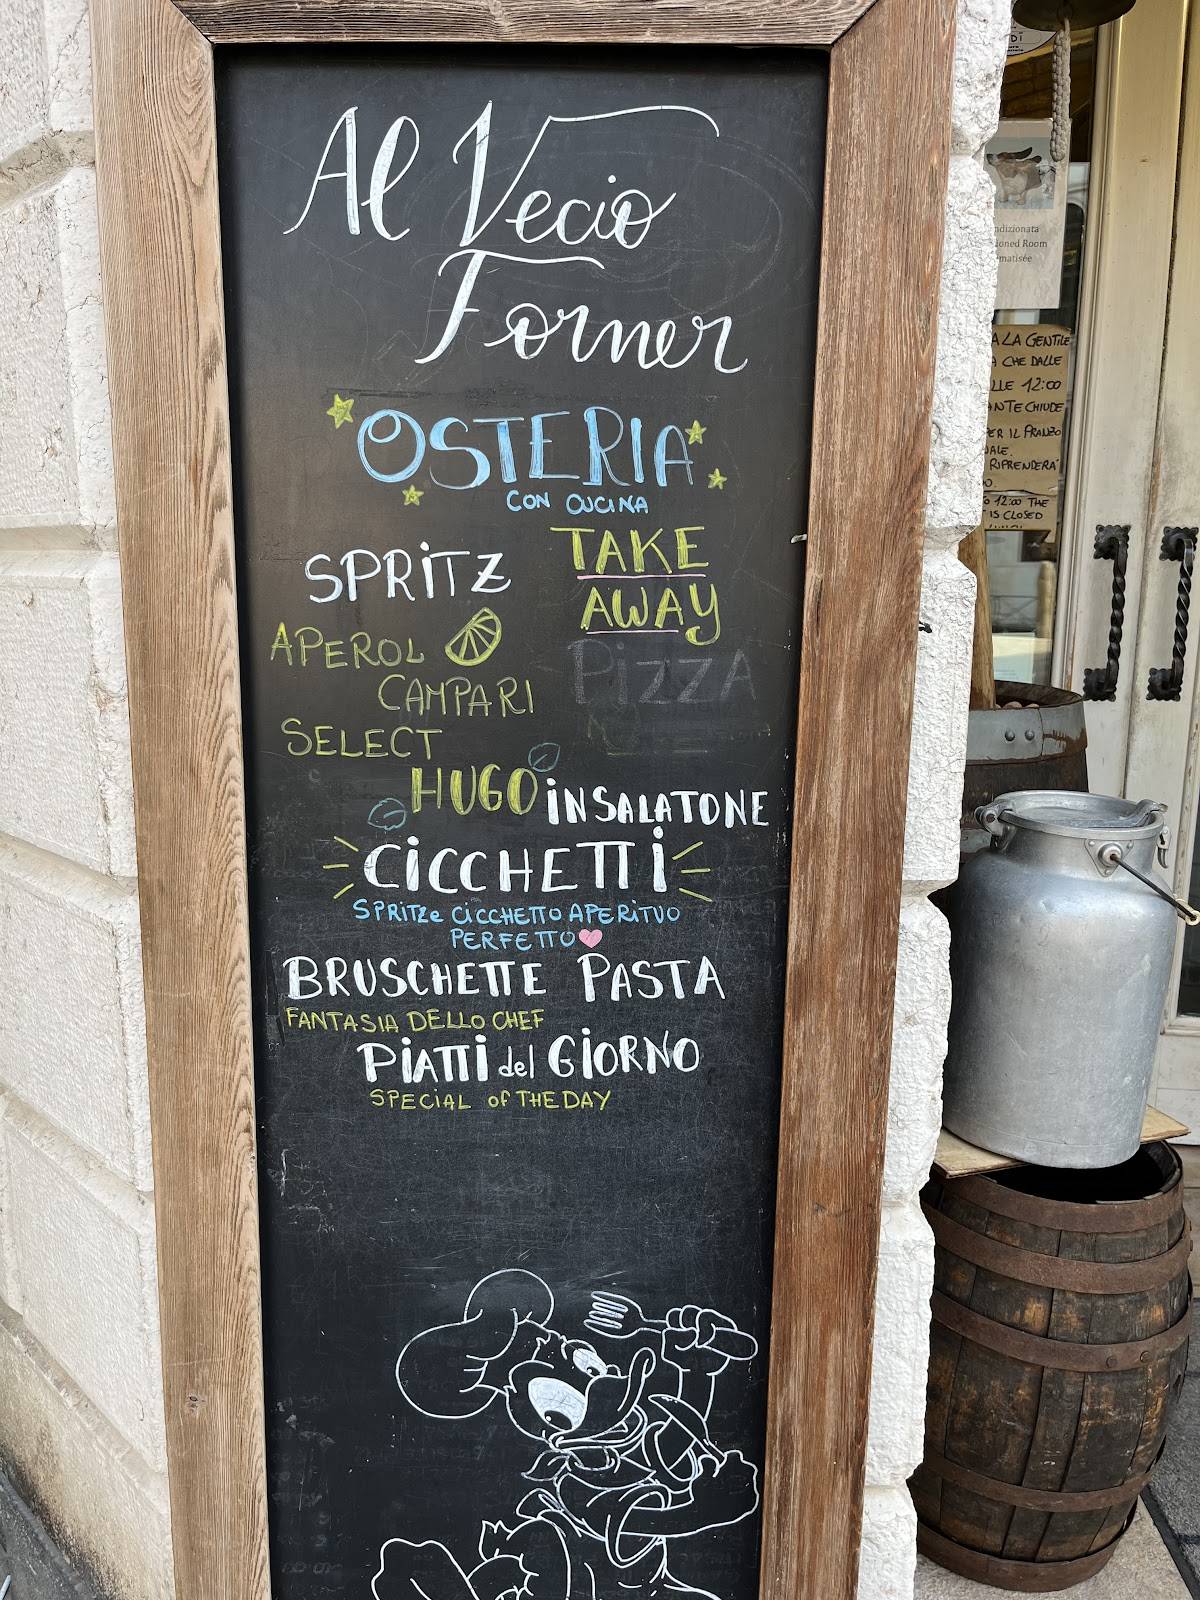 Al Vecio
Forner
OSTERIA
CON CUCINA
SPRITZ
TAKE
AWAY
PIZZA
APEROL
CAMPARI
SELECT
HUGO
INSALATONE
CICCHETTI
SPRITZ e CICCHETTO APERITIVO
PERFETTO
BRUSCHETTE PASTA
FANTASIA DELLO CHEF
PIATTI del GIORNO
SPECIAL OF THE DAY
ndizionata
ioned Room
matisée
A LA GENTILE
A CHE DALLE
LLE 12:00
ANTE CHIUDE
PER IL PRANZO
ALE.
RIPRENDERA'
12:00 THE
IS CLOSED